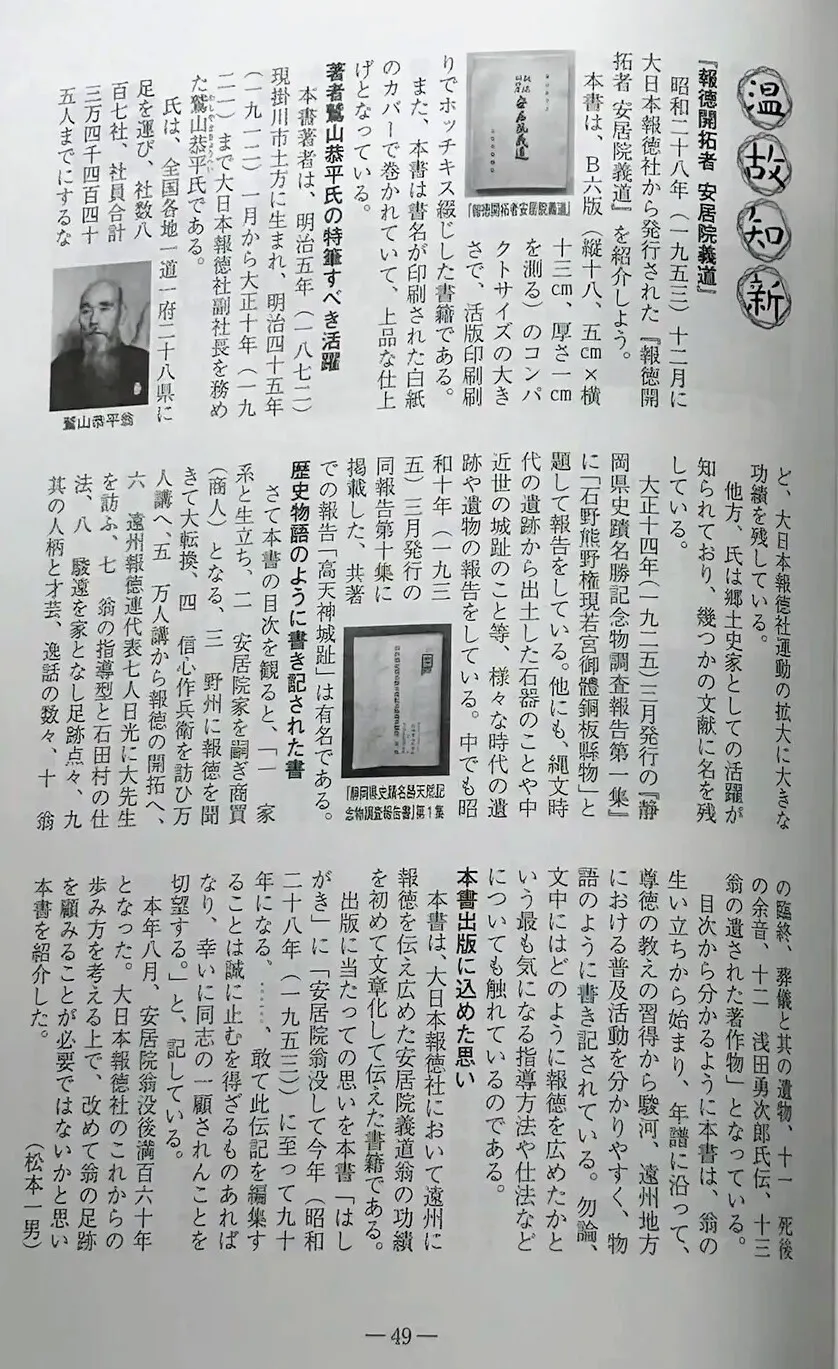 温故知新
『報徳開拓者 安居院義道』
昭和二十八年（一九五三）十二月に
大日本報徳社から発行された『報徳開
拓者 安居院義道』を紹介しよう。
本書は、Ｂ六版（縦十八、五㎝×横
十三㎝、厚さ一㎝
を測る）のコンパ
クトサイズの大き
さで、活版印刷刷
安居院義道
『報徳開拓者安居院義道』
りでホッチキス綴じした書籍である。
また、本書は書名が印刷された白紙
のカバーで巻かれていて、上品な仕上
げとなっている。
著者鷲山恭平氏の特筆すべき活躍
本書著者は、明治五年（一八七二）
現掛川市土方に生まれ、明治四十五年
（一九一二）一月から大正十年（一九
二一）まで大日本報徳社副社長を務め
た鷲山恭平氏である。
わしやまきょうへい
氏は、全国各地一道一府二十八県に
足を運び、社数八
百七社、社員合計
三万四千四百四十
五人までにするな
鷲山恭平翁
ど、大日本報徳社運動の拡大に大きな
功績を残している。
他方、氏は郷土史家としての活躍が
知られており、幾つかの文献に名を残
している。
大正十四年（一九二五）三月発行の『静
岡県史蹟名勝記念物調査報告第一集』
に「石野熊野権現若宮御體銅板縣物」と
題して報告をしている。他にも、縄文時
代の遺跡から出土した石器のことや中
近世の城趾のこと等、様々な時代の遺
跡や遺物の報告をしている。中でも昭
和十年（一九三
五）三月発行の
同報告第十集に
掲載した、共著
での報告「高天神城趾」は有名である。
『静岡県史蹟名勝天然記
念物調査報告書』第１集
歴史物語のように書き記された書
さて本書の目次を観ると、「一　家
系と生立ち、二　安居院家を嗣ぎ商買
（商人）となる、三　野州に報徳を聞
きて大転換、四　信心作兵衛を訪ひ万
人講へ、五　万人講から報徳の開拓へ、
六　遠州報徳連代表七人日光に大先生
を訪ふ、七　翁の指導型と石田村の仕
法、八　駿遠を家となし足跡点々、九
其の人柄と才芸、逸話の数々、十　翁
の臨終、葬儀と其の遺物、十一　死後
の余音、十二　浅田勇次郎氏伝、十三
翁の遺された著作物」となっている。
目次から分かるように本書は、翁の
生い立ちから始まり、年譜に沿って、
尊徳の教えの習得から駿河、遠州地方
における普及活動を分かりやすく、物
語のように書き記されている。勿論、
文中にはどのように報徳を広めたかと
いう最も気になる指導方法や仕法など
についても触れているのである。
本書出版に込めた思い
本書は、大日本報徳社において遠州に
報徳を伝え広めた安居院義道翁の功績
を初めて文章化して伝えた書籍である。
出版に当たっての思いを本書「はし
がき」に「安居院翁没して今年（昭和
二十八年（一九五三））に至って九十
年になる、……、敢て此伝記を編集す
ることは誠に止むを得ざるものあれば
なり、幸いに同志の一顧されんことを
切望する。」と、記している。
本年八月、安居院翁没後満百六十年
となった。大日本報徳社のこれからの
歩み方を考える上で、改めて翁の足跡
を顧みることが必要ではないかと思い
本書を紹介した。
（松本一男）
—49—